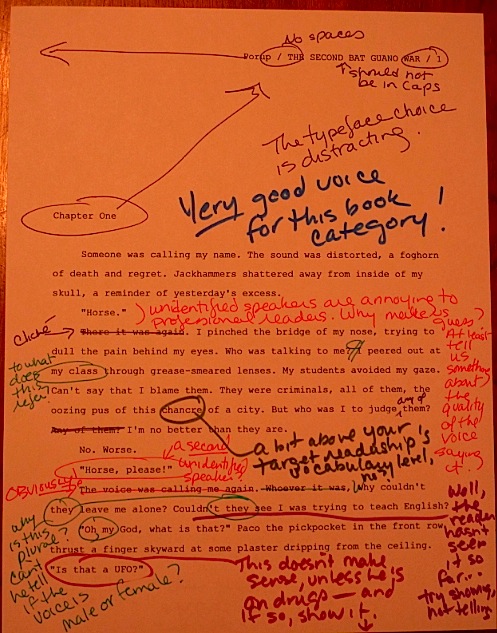 No spaces
Porup / THE SECOND BAT GUANO WAR / 1
should not
be in Caps
The typeface choice
is distracting.
Very good voice
for this book
category!
Chapter One
Someone was calling my name. The sound was distorted, a foghorn
of death and regret. Jackhammers shattered away from inside of my
skull, a reminder of yesterday's excess.
"Horse."
unidentified speakers are annoying to
professional readers. Why make us
guess? At least
tell
us
something
about
the
quality
of the
voice
saying
it!
cliché
There it was again. I pinched the bridge of my nose, trying to
dull the pain behind my eyes. Who was talking to me? I peered out at
my class through grease-smeared lenses. My students avoided my gaze.
to what
does
this
refer?
Can't say that I blame them. They were criminals, all of them, the
oozing pus of this chancre of a city. But who was I to judge them?
any of
Any of them? I'm no better than they are.
a bit above your
target readership's
vocabulary level,
no?
No. Worse.
"Horse, please!"
a second
unidentified
speaker?
OBVIOUSLY
The voice was calling me again. Whoever it was, Why couldn't
they leave me alone? Couldn't they see I was trying to teach English?
why
is this
plural?
can't
he tell
if the
voice is
male or female?
"Oh my God, what is that?" Paco the pickpocket in the front row
thrust a finger skyward at some plaster dripping from the ceiling.
"Is that a UFO?"
This doesn't make
sense, unless he is
on drugs — and
if so, show it.
Well,
the
reader
hasn't
seen
it so
far...
try showing,
not telling